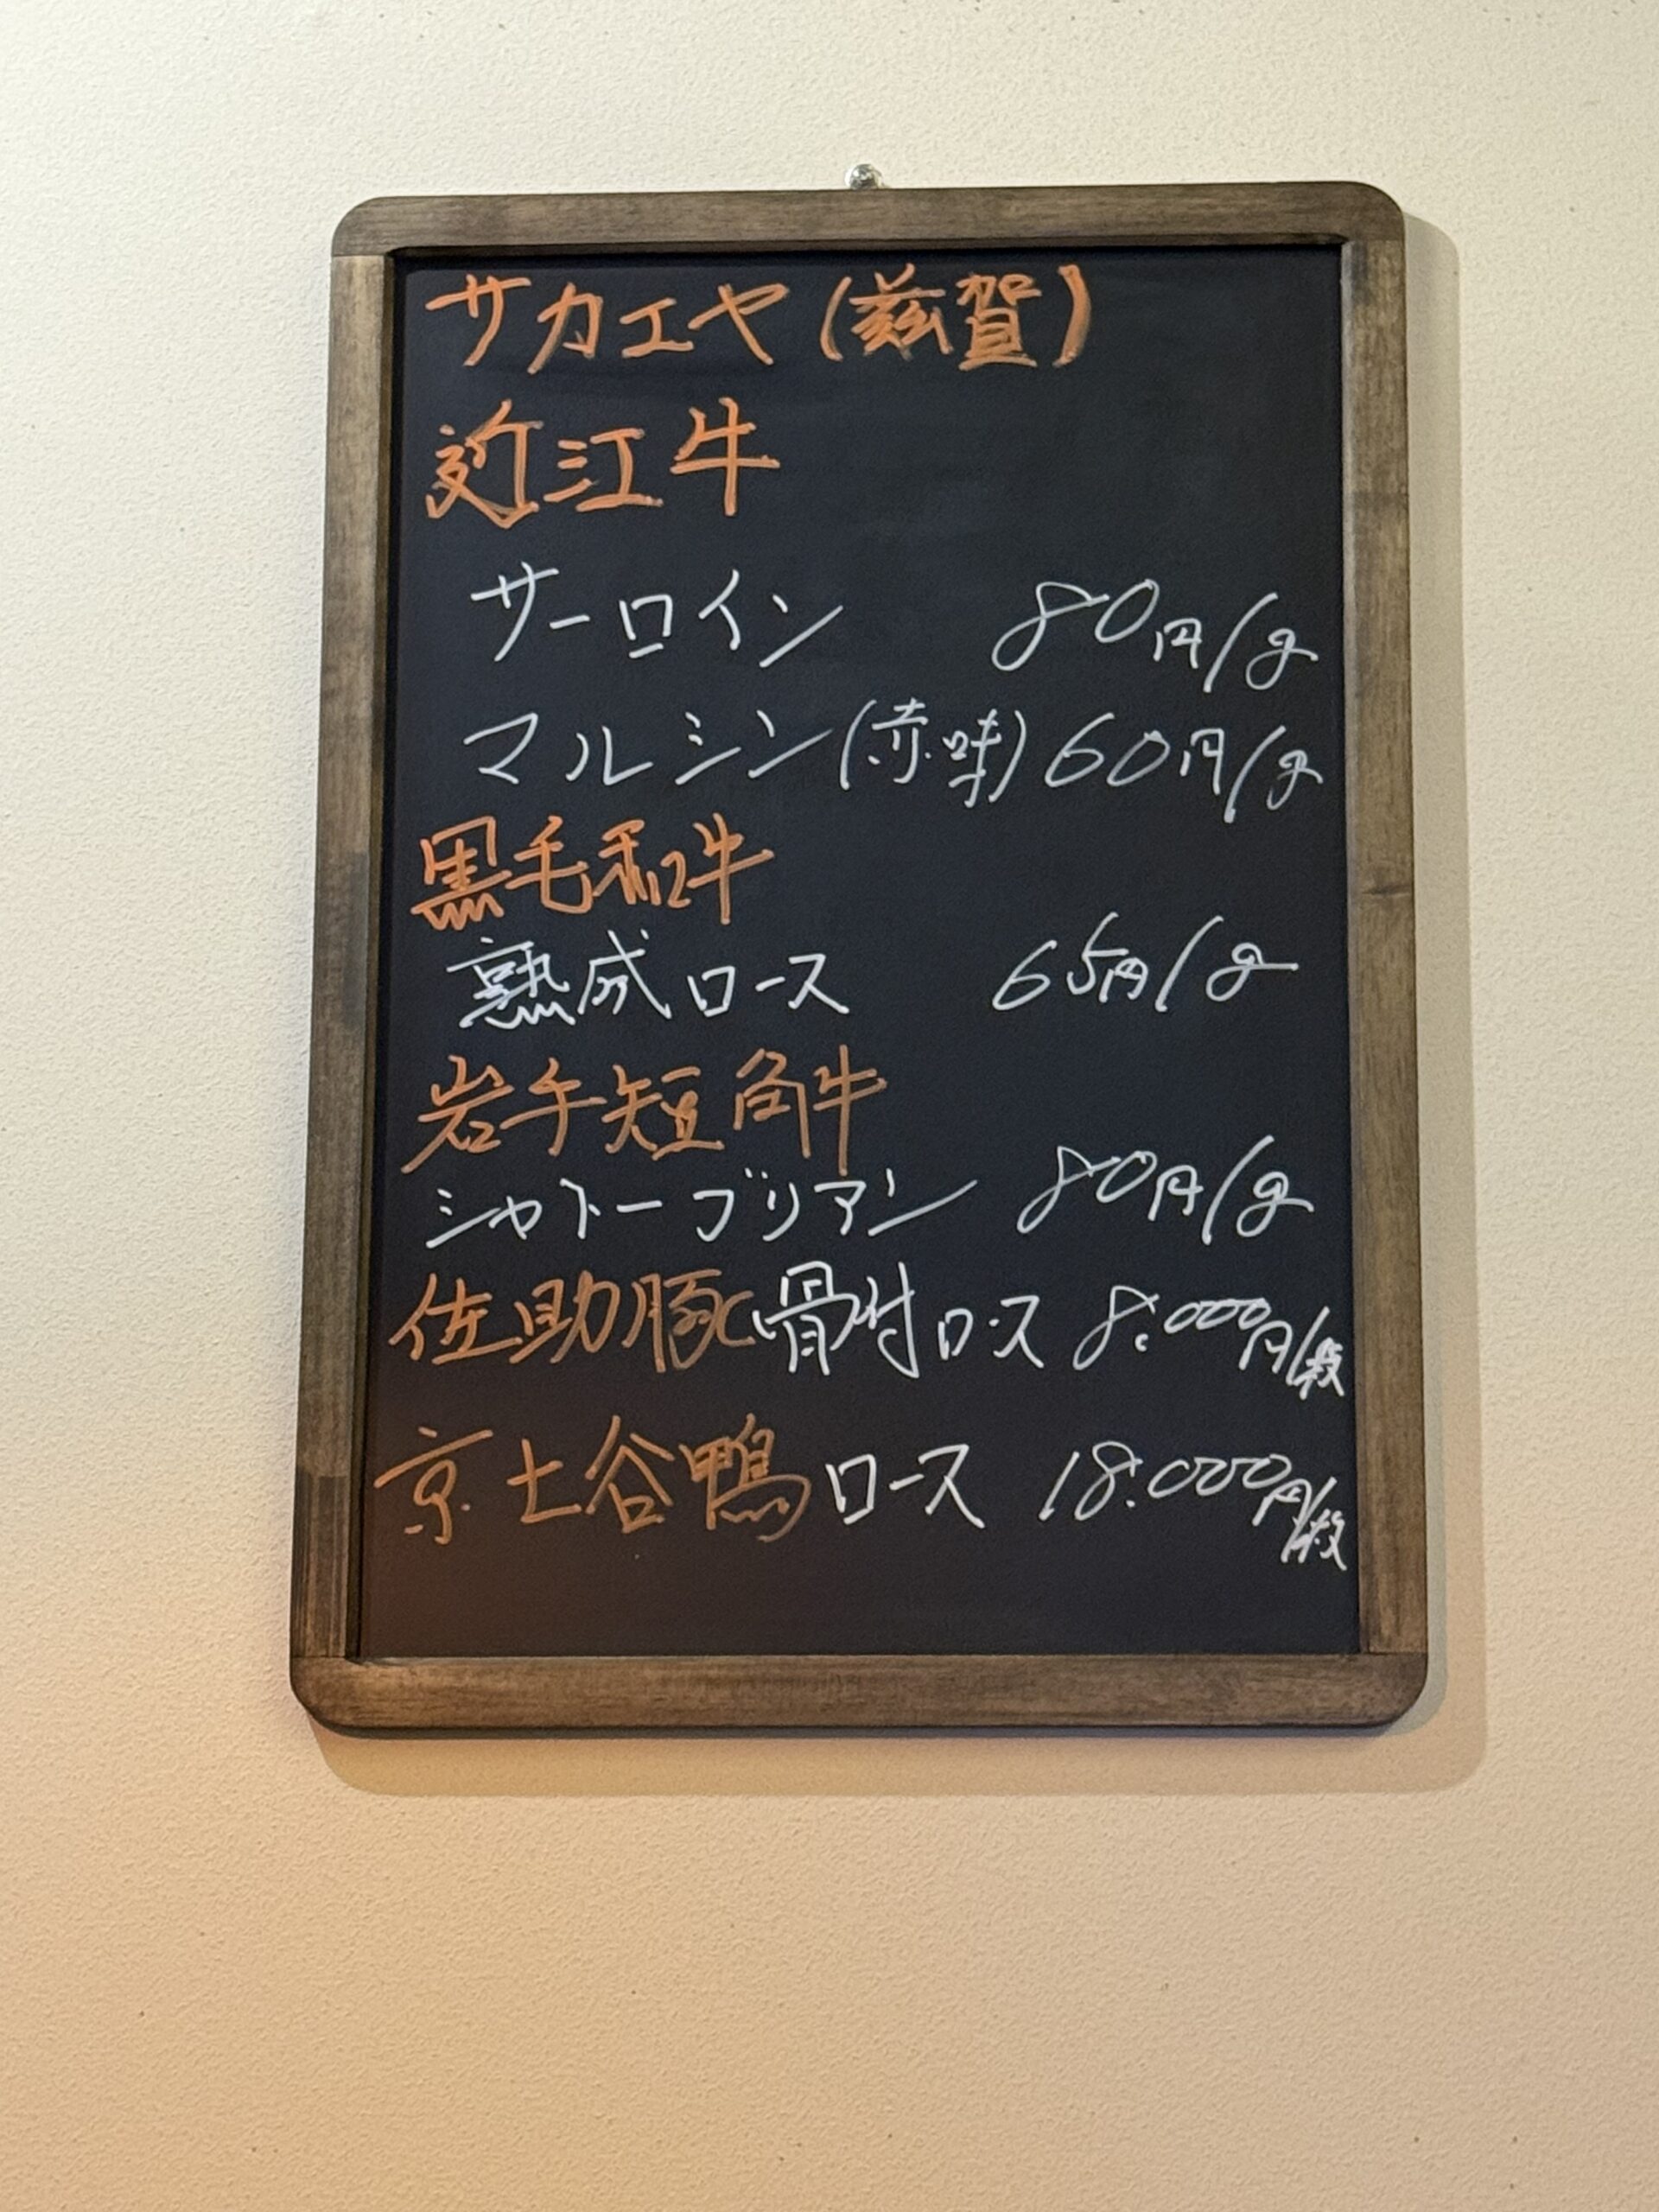 サカエヤ(滋賀)
近江牛
サーロイン 80円/g
マルシン(赤味)60円/g
黒毛和牛
熟成ロース 65円/g
岩手短角牛
シャトーブリアン 80円/g
佐助豚骨付ロース 8,000円/枚
京七谷鴨ロース 18,000円/枚